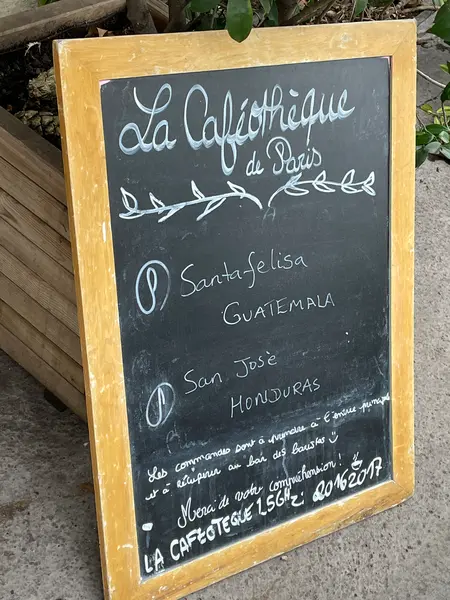 La Caféothèque
de Paris
Santa-felisa
GUATEMALA
San José
HONDURAS
Les commandes sont à prendre à l'entrée principale
et à récupérer au bar des baristas
Merci de votre compréhension!
LA CAFEOTEQUE LSGH 2: 20162017